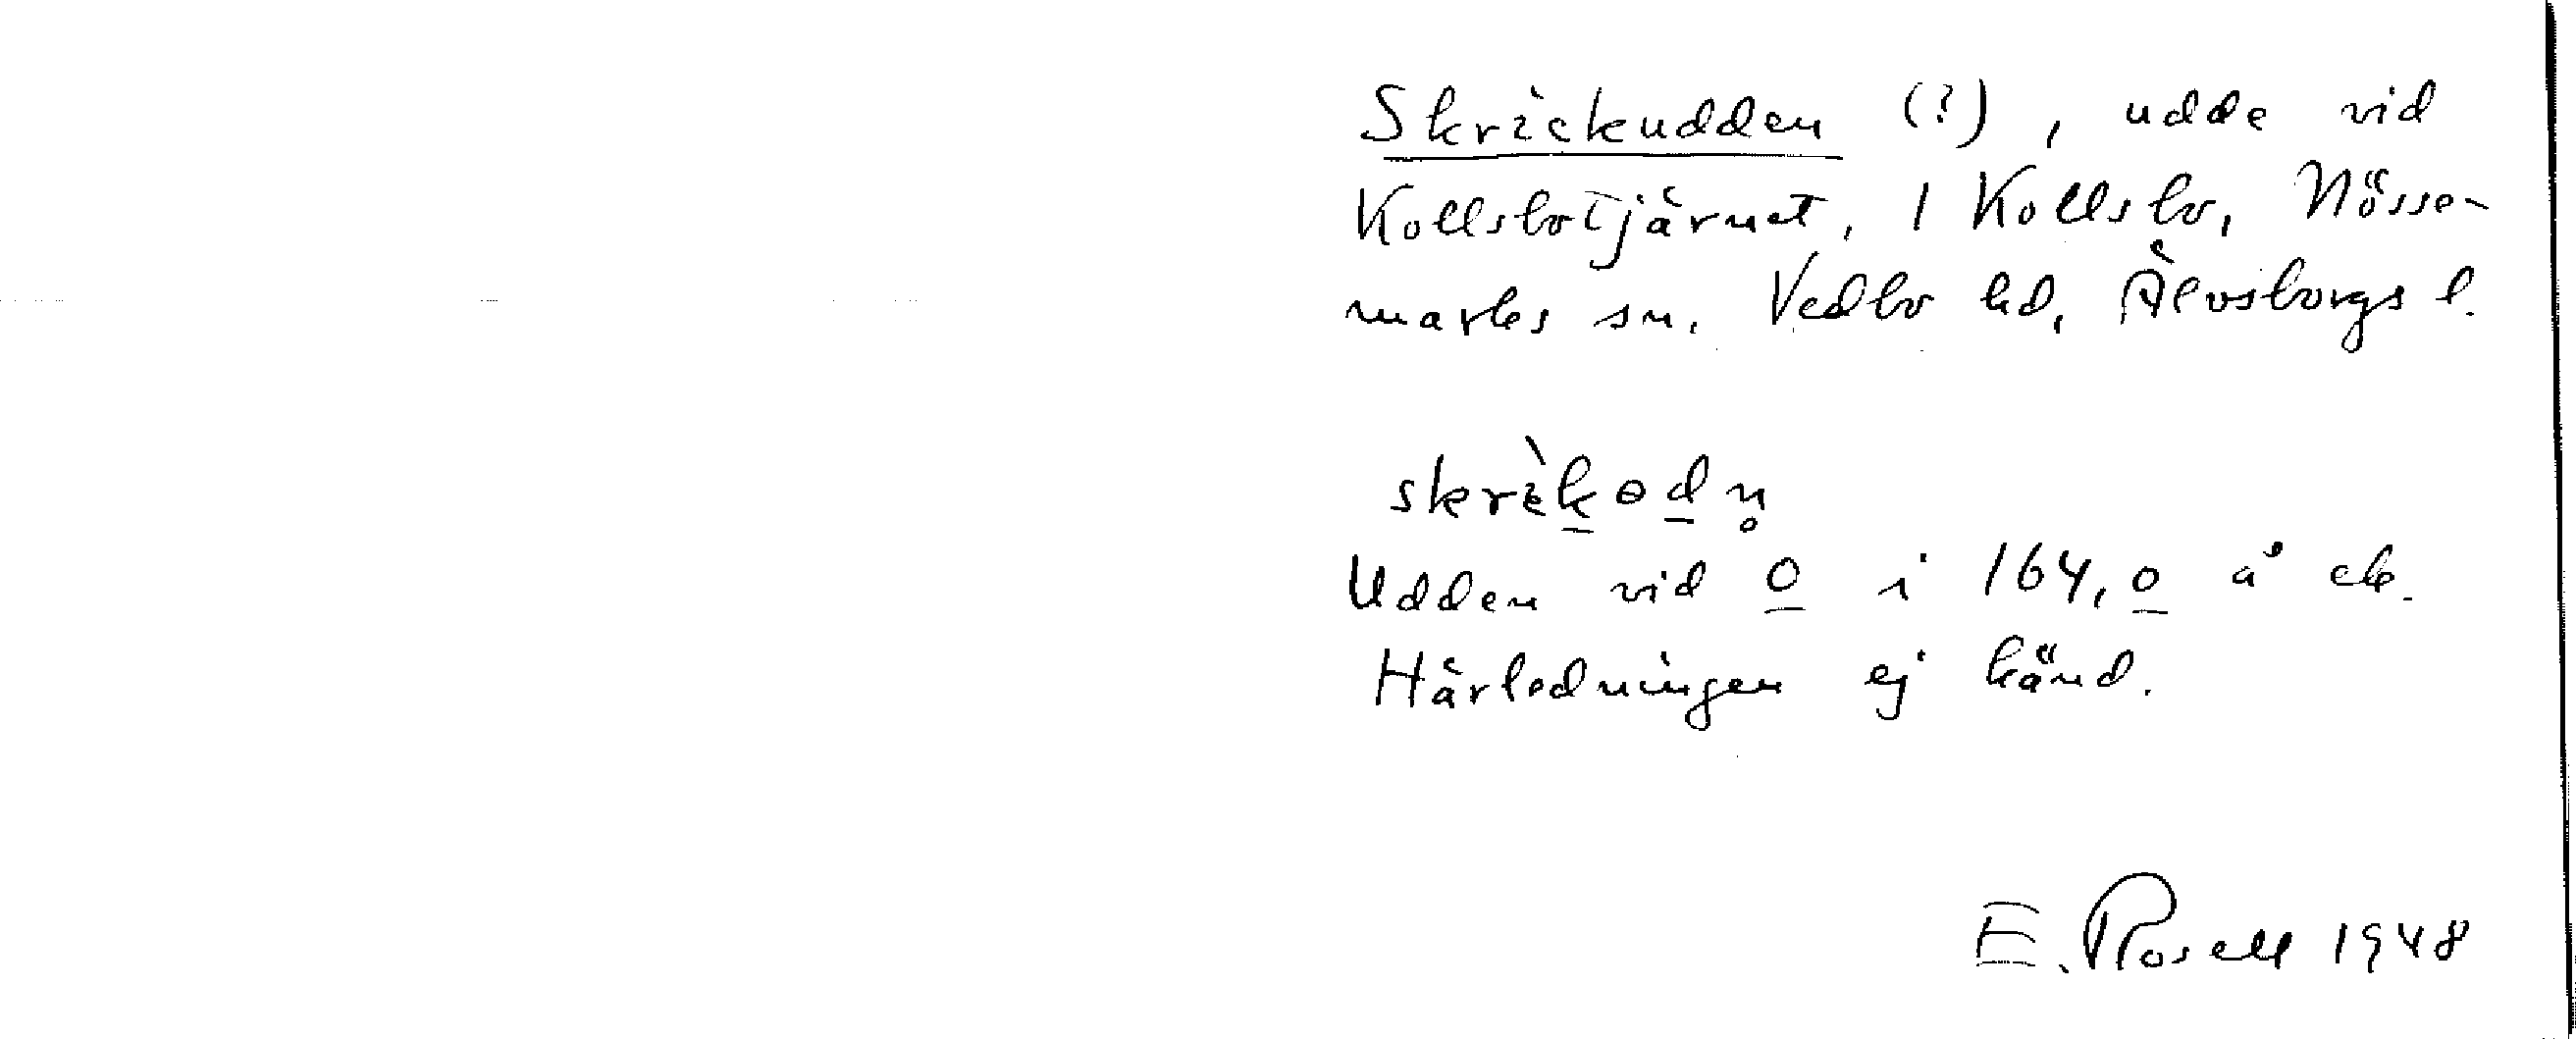 Skrickudden (?), udde vid
Kollsbotjärnet, 1 Kollsbo, Nösse-
marks sn. Vedbo hd, Älvsborgs l.
skrèkodn̥
Udden vid o i 164,o å ek.
Härledningen ej känd.
E. Rosell 1948